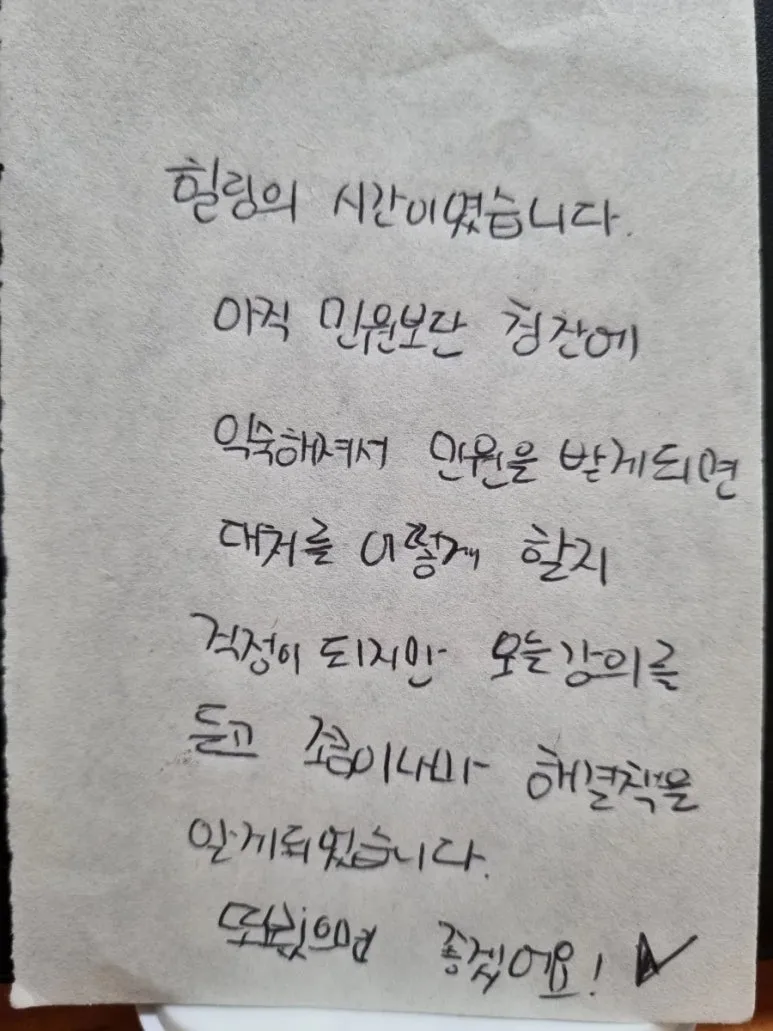 힐링의 시간이였습니다.
아직 민원보단 칭찬에
익숙해져서 민원을 받게되면
대처를 어떻게 할지
걱정이 되지만 오늘강의를
듣고 조금이나마 해결책을
알게되었습니다.
좋겠어요!